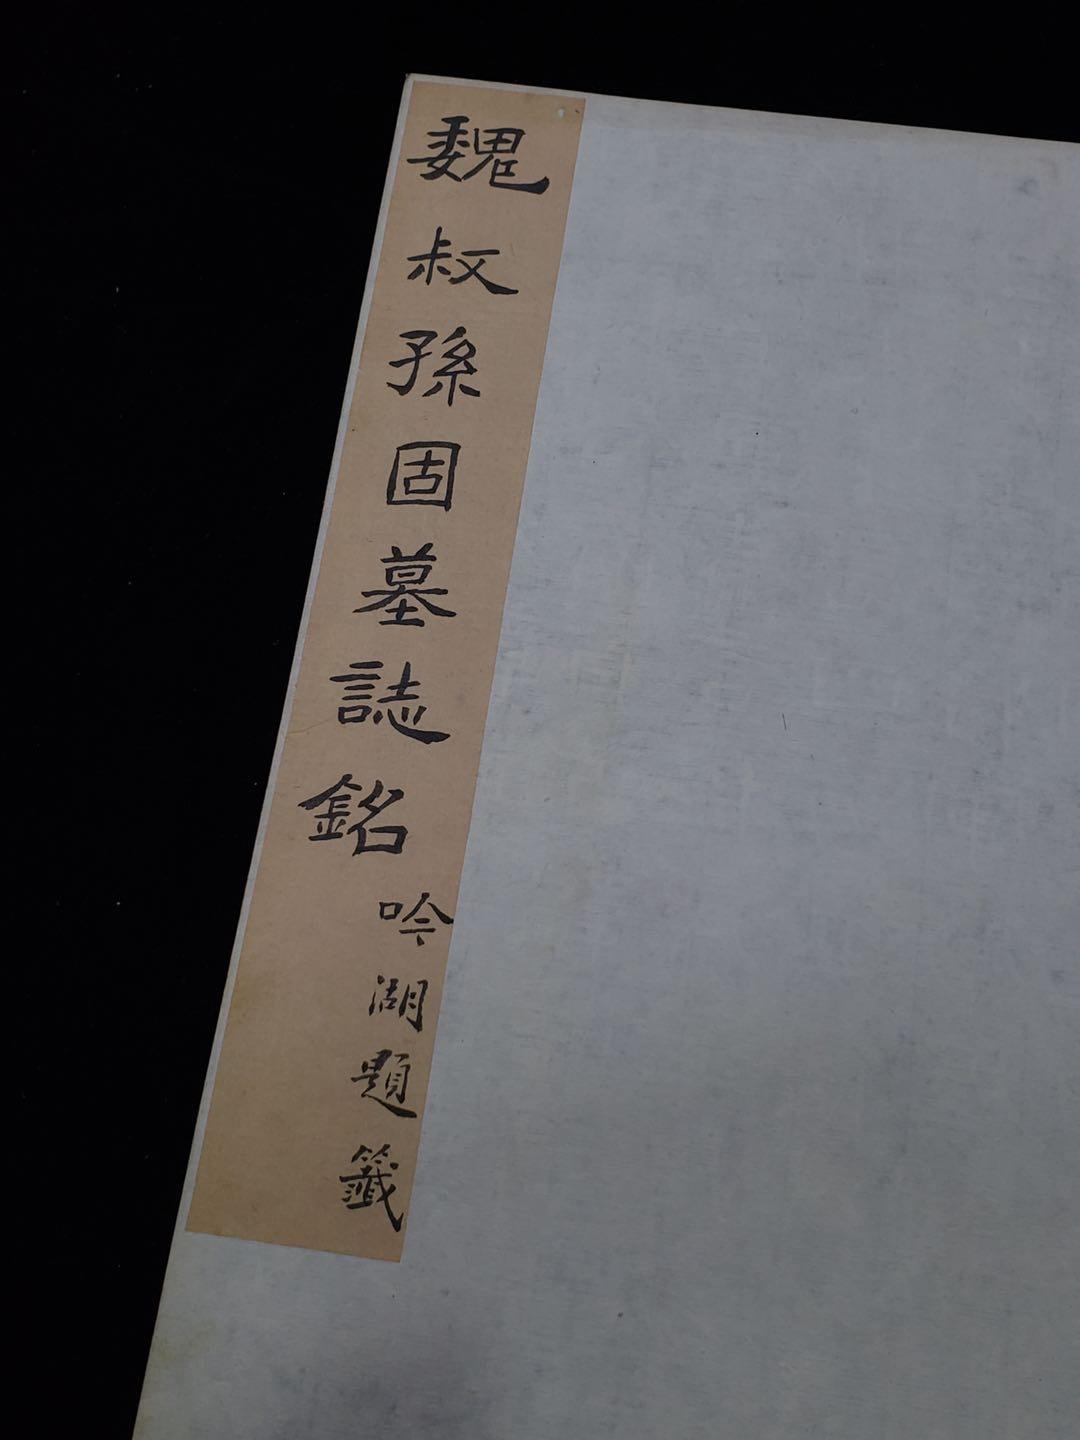 魏叔孫固墓誌銘
吟湖題籤